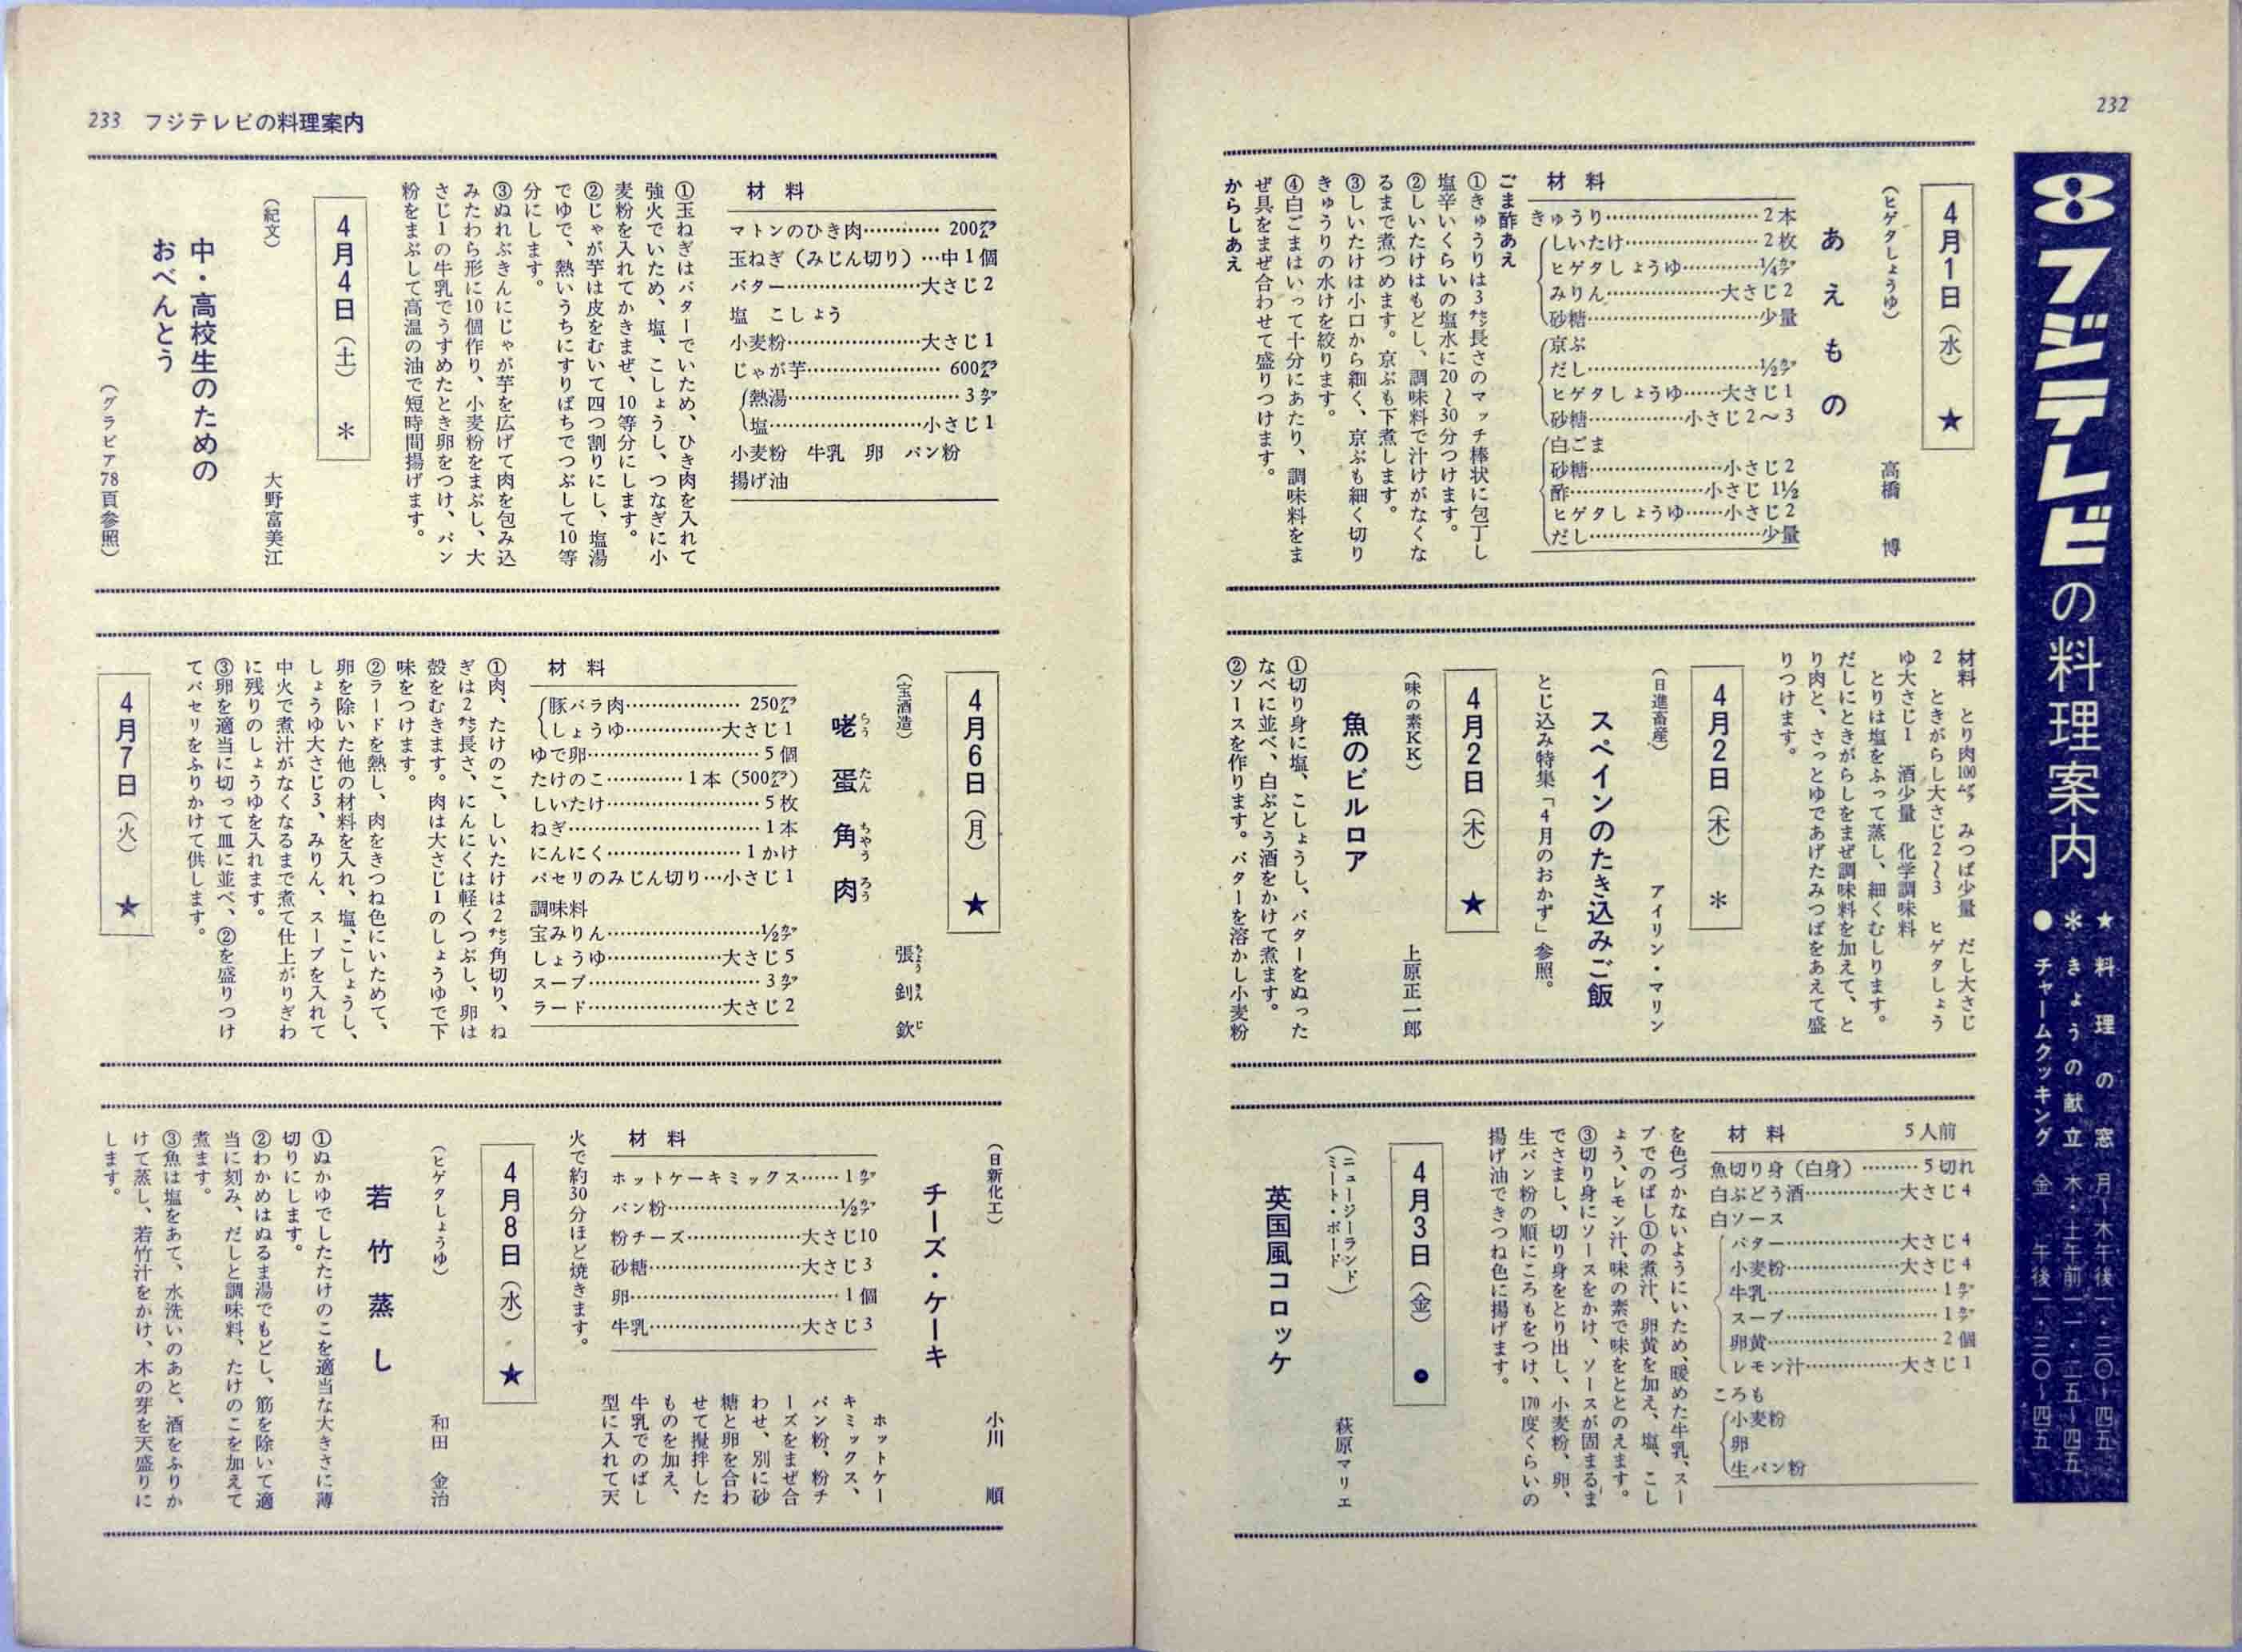 232
8 フジテレビの料理案内
★料理の窓 月〜木午後一・三〇〜四五
＊きょうの献立 木・土午前一一・五〜四五
●チャームクッキング 金 午後一・三〇〜四五
4月1日（水）★
（ヒゲタしょうゆ） 高橋 博
あえもの
材料
きゅうり……2本
しいたけ……2枚
ヒゲタしょうゆ……¼カップ
みりん……大さじ2
砂糖……少量
京ぶ
だし……½カップ
ヒゲタしょうゆ……大さじ1
砂糖……小さじ2〜3
白ごま
砂糖……小さじ2
酢……小さじ1½
ヒゲタしょうゆ……小さじ2
だし……少量
ごま酢あえ
①きゅうりは3センチ長さのマッチ棒状に包丁し
塩辛いくらいの塩水に20〜30分つけます。
②しいたけはもどし、調味料で汁けがなくな
るまで煮つめます。京ぶも下煮します。
③しいたけは小口から細く、京ぶも細く切り
きゅうりの水けを絞ります。
④白ごまはいって十分にあたり、調味料をま
ぜ具をまぜ合わせて盛りつけます。
からしあえ
材料 とり肉100グラム みつば少量 だし大さじ
2 ときがらし大さじ2〜3 ヒゲタしょう
ゆ大さじ1 酒少量 化学調味料
とりは塩をふって蒸し、細くむしります。
だしにときがらしをまぜ調味料を加えて、と
り肉と、さっとゆであげたみつばをあえて盛
りつけます。
4月2日（木）＊
（日進畜産） アイリン・マリン
スペインのたき込みご飯
とじ込み特集「4月のおかず」参照。
4月2日（木）★
（味の素KK） 上原正一郎
魚のビルロア
①切り身に塩、こしょうし、バターをぬった
なべに並べ、白ぶどう酒をかけて煮ます。
②ソースを作ります。バターを溶かし小麦粉
材料 5人前
魚切り身（白身）……5切れ
白ぶどう酒……大さじ4
白ソース
バター……大さじ4
小麦粉……大さじ4
牛乳……1カップ
スープ……1カップ
卵黄……2個
レモン汁……大さじ1
ころも
小麦粉
卵
生パン粉
を色づかないようにいため、暖めた牛乳、スー
プでのばし①の煮汁、卵黄を加え、塩、こし
ょう、レモン汁、味の素で味をととのえます。
③切り身にソースをかけ、ソースが固まるま
でさまし、切り身をとり出し、小麦粉、卵、
生パン粉の順にころもをつけ、170度くらいの
揚げ油できつね色に揚げます。
4月3日（金）●
（ニュージーランド
ミート・ボード） 萩原マリエ
英国風コロッケ
233 フジテレビの料理案内
材料
マトンのひき肉……200グラム
玉ねぎ（みじん切り）…中1個
バター……大さじ2
塩 こしょう
小麦粉……大さじ1
じゃが芋……600グラム
熱湯……3カップ
塩……小さじ1
小麦粉 牛乳 卵 パン粉
揚げ油
①玉ねぎはバターでいため、ひき肉を入れて
強火でいため、塩、こしょうし、つなぎに小
麦粉を入れてかきまぜ、10等分にします。
②じゃが芋は皮をむいて四つ割りにし、塩湯
でゆで、熱いうちにすりばちでつぶして10等
分にします。
③ぬれぶきんにじゃが芋を広げて肉を包み込
みたわら形に10個作り、小麦粉をまぶし、大
さじ1の牛乳でうすめたとき卵をつけ、パン
粉をまぶして高温の油で短時間揚げます。
4月4日（土）＊
（紀文） 大野富美江
中・高校生のための
おべんとう
（グラビア78頁参照）
4月6日（月）★
（宝酒造） 張釗欽 ちょうきんじ
咾蛋角肉 らうたんちゃうろう
材料
豚バラ肉……250グラム
しょうゆ……大さじ1
ゆで卵……5個
たけのこ……1本（500グラム）
しいたけ……5枚
ねぎ……1本
にんにく……1かけ
パセリのみじん切り…小さじ1
調味料
宝みりん……½カップ
しょうゆ……大さじ5
スープ……3カップ
ラード……大さじ2
①肉、たけのこ、しいたけは2センチ角切り、ね
ぎは2センチ長さ、にんにくは軽くつぶし、卵は
殻をむきます。肉は大さじ1のしょうゆで下
味をつけます。
②ラードを熱し、肉をきつね色にいためて、
卵を除いた他の材料を入れ、塩、こしょうし、
しょうゆ大さじ3、みりん、スープを入れて
中火で煮汁がなくなるまで煮て仕上がりぎわ
に残りのしょうゆを入れます。
③卵を適当に切って皿に並べ、②を盛りつけ
てパセリをふりかけて供します。
4月7日（火）★
（日新化工） 小川 順
チーズ・ケーキ
材料
ホットケーキミックス……1カップ
パン粉……½カップ
粉チーズ……大さじ10
砂糖……大さじ3
卵……1個
牛乳……大さじ3
ホットケー
キミックス、
パン粉、粉チ
ーズをまぜ合
わせ、別に砂
糖と卵を合わ
せて攪拌した
ものを加え、
牛乳でのばし
型に入れて天
火で約30分ほど焼きます。
4月8日（水）★
（ヒゲタしょうゆ） 和田 金治
若竹蒸し
①ぬかゆでしたたけのこを適当な大きさに薄
切りにします。
②わかめはぬるま湯でもどし、筋を除いて適
当に刻み、だしと調味料、たけのこを加えて
煮ます。
③魚は塩をあて、水洗いのあと、酒をふりか
けて蒸し、若竹汁をかけ、木の芽を天盛りに
します。